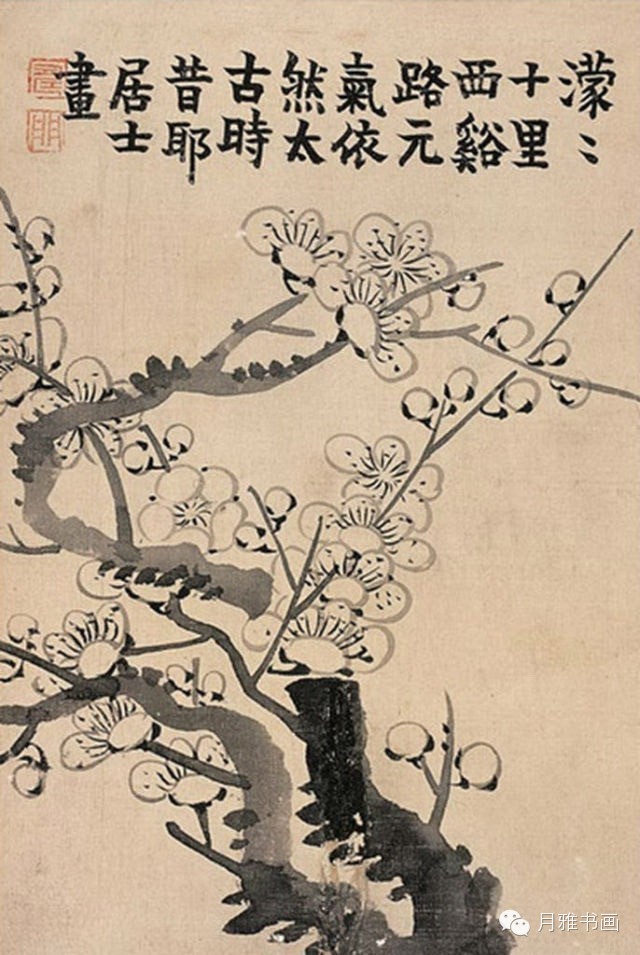 濛〻
十里
西谿
路元
氣依
然太
古時
昔耶
居士
畫
月雅书画